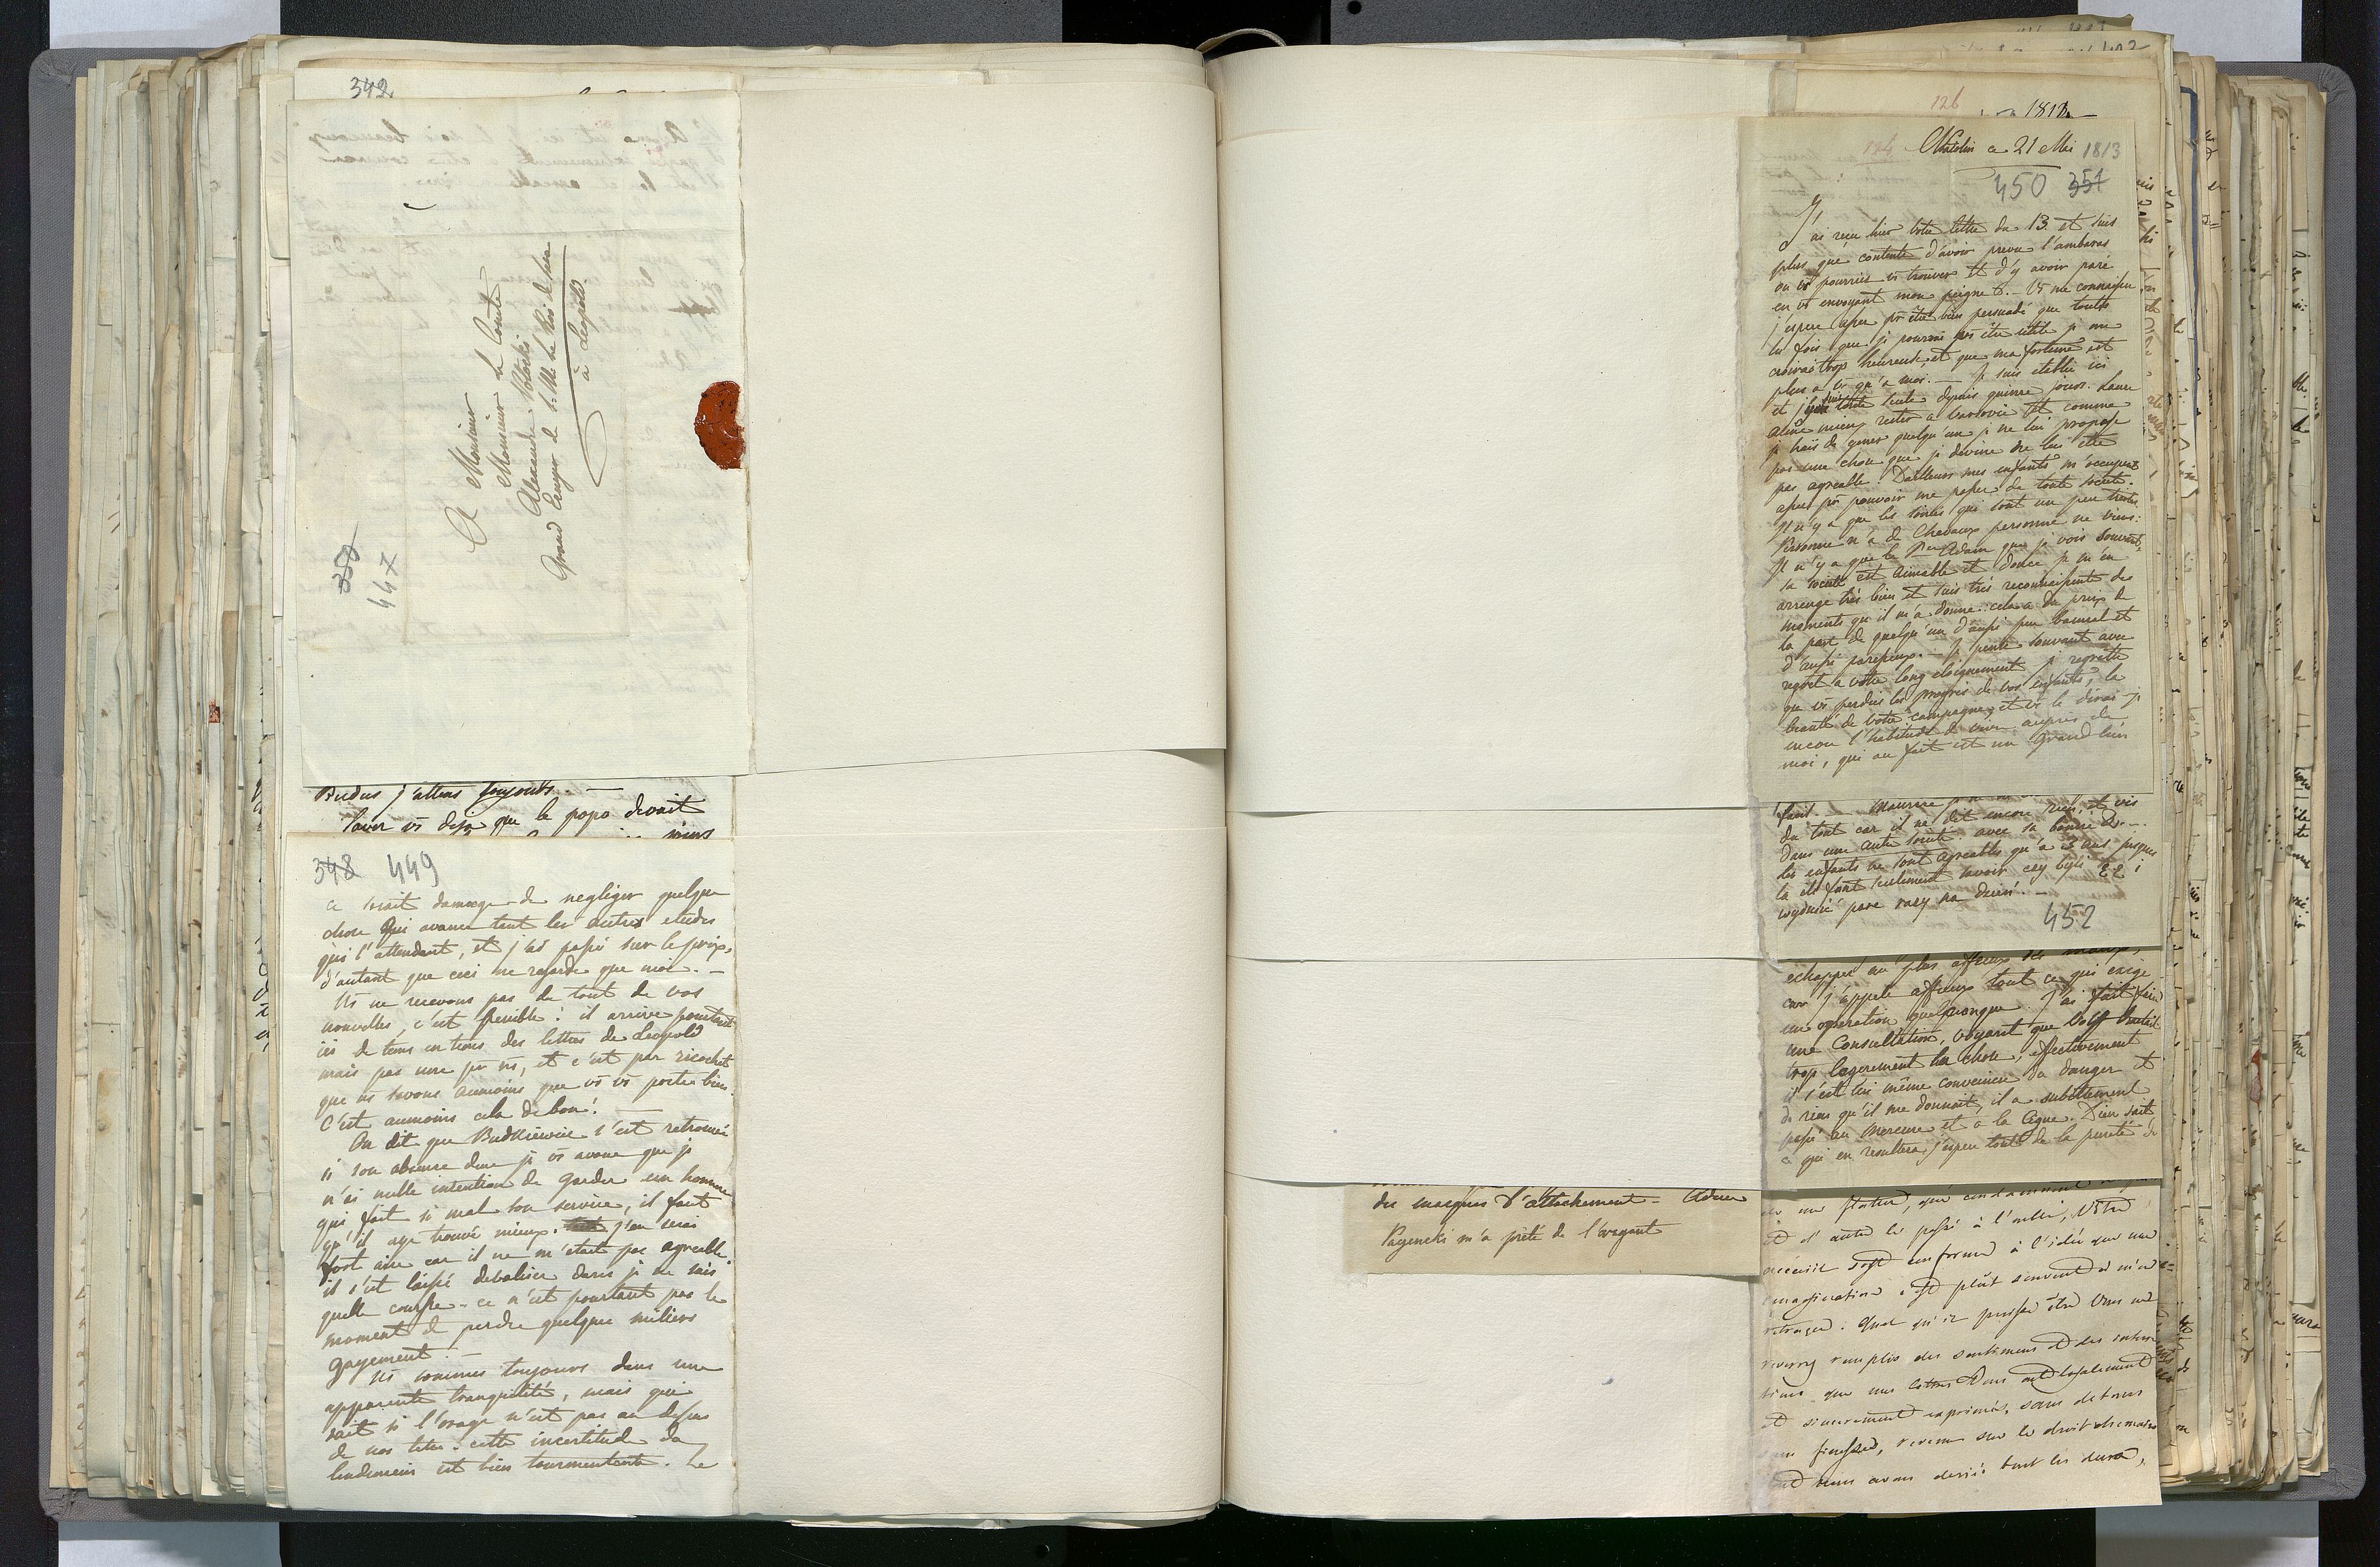 342
A Monsieur
Monsieur le Comte
Alexandre Potocki
Grand Ecuyer de S. M. le Roi de Saxe
à Leopold
350
447
Budus j'attens toujours. —
Saver vs deja que le papa devait
348 449
ce serait damage de negliger quelque
chose qui avance tant les autres etudes
qui l'attendent, et j'ai passé sur le prix,
d'autant que ceci ne regarde que moi. —
Ns ne recevons pas du tout de vos
nouvelles, c'est penible! il arrive pourtant
ici de tems en tems des lettres de Leopold
mais pas une pr ns, et c'est par ricochet
que ns savons aumoins que vs vs portez bien.
C'est aumoins cela de bon! —
On dit que Budkiewicz s'est retrouvé
si son absence dure je vs avoue que je
n'ai nulle intention de garder un homme
qui fait si mal son service, il faut
qu'il aye trouvé mieux. j'en serai
fort aise car il ne m'etait pas agreable.
il s'est laissé debaliser dans je ne sais
quelle course - ce n'est pourtant pas le
moment de perdre quelque milliers
gayement. —
Ns sommes toujours dans une
apparente tranquilité, mais qui
sait si l'orage n'est pas au dessus
de nos tetes. cette incertitude du
lendemain est bien tourmentante. Le
126
1813
124 Natolin ce 21 Mai 1813
450 351
J'ai reçu hier votre lettre du 13 et suis
plus que contente d'avoir prevu l'ambaras
ou vs pourries vs trouver et d'y avoir paré
en vs envoyant mon peigne &. — Vs me connaissez
j'espere assez pr etre bien persuadé que toutes
les fois que je pourrai vs etre utile je me
croirai trop heureuse, et que ma fortune est
plus a vs qu'a moi. — Je suis etablie ici
et j'y suis toute seule depuis quinze jours. Laure
aime mieux rester a Varsovie et comme
je hais de gener quelqu'un je ne lui propose
pas une chose que je devine ne lui etre
pas agreable. Dailleurs mes enfants m'occupent
assez pr pouvoir me passer de toute societé.
Il n'y a que les soirées qui sont un peu tristes.
Personne n'a de chevaux personne ne viens:
Il n'y a que le Pce Adam que je vois souvent,
sa societé est aimable et douce je m'en
arrenge très bien et suis très reconnaissante des
moments qu'il m'a donné: cela a du prix de
la part de quelqu'un d'aussi peu bannal et
d'aussi paresseux. — je pense souvant avec
regret a votre long eloignement je regrette
que vs perdies les progrès de vos enfants, la
beauté de votre campagne, et vs le dirai-je
encore l'habitude de vivre auprès de
moi, qui au fait est un grand bien
fait. — Maurice
du tout car il ne dit encore rien, et vis
dans une autre societé avec sa bonne &. —
Les enfants ne sont agreables qu'a 2 ans jusques
la ils font seulement
wydusić parę razy na dzień. —
452
echapper au plus affreux des maux,
car j'appele affreux tout ce qui exige
une operation quelquonque. J'ai fait faire
une Consultation, voyant que Wolf traitait
trop legerement la chose; effectivement
il s'est lui même convaincu du danger et
de rien qu'il me donnait, il a subittement
passé au Mercure et a la Cigue. Dieu sait
ce qui en resultera, j'espere tout de la pureté de
des marques d'attachement - Adieu
m'a prêté de l'argent
et d'autre le passé à l'oubli, Votre
accueil soit conforme à l'idée que mon
imagination s'est plut souvent à m'en
retracer. Quel qu'il puisse être Vous me
reverrez remplie des sentimens et des
que mes lettres Vous ont loyalement
et sincerement exprimés, sans detours
sans finesses, revenu sur le droit chemin